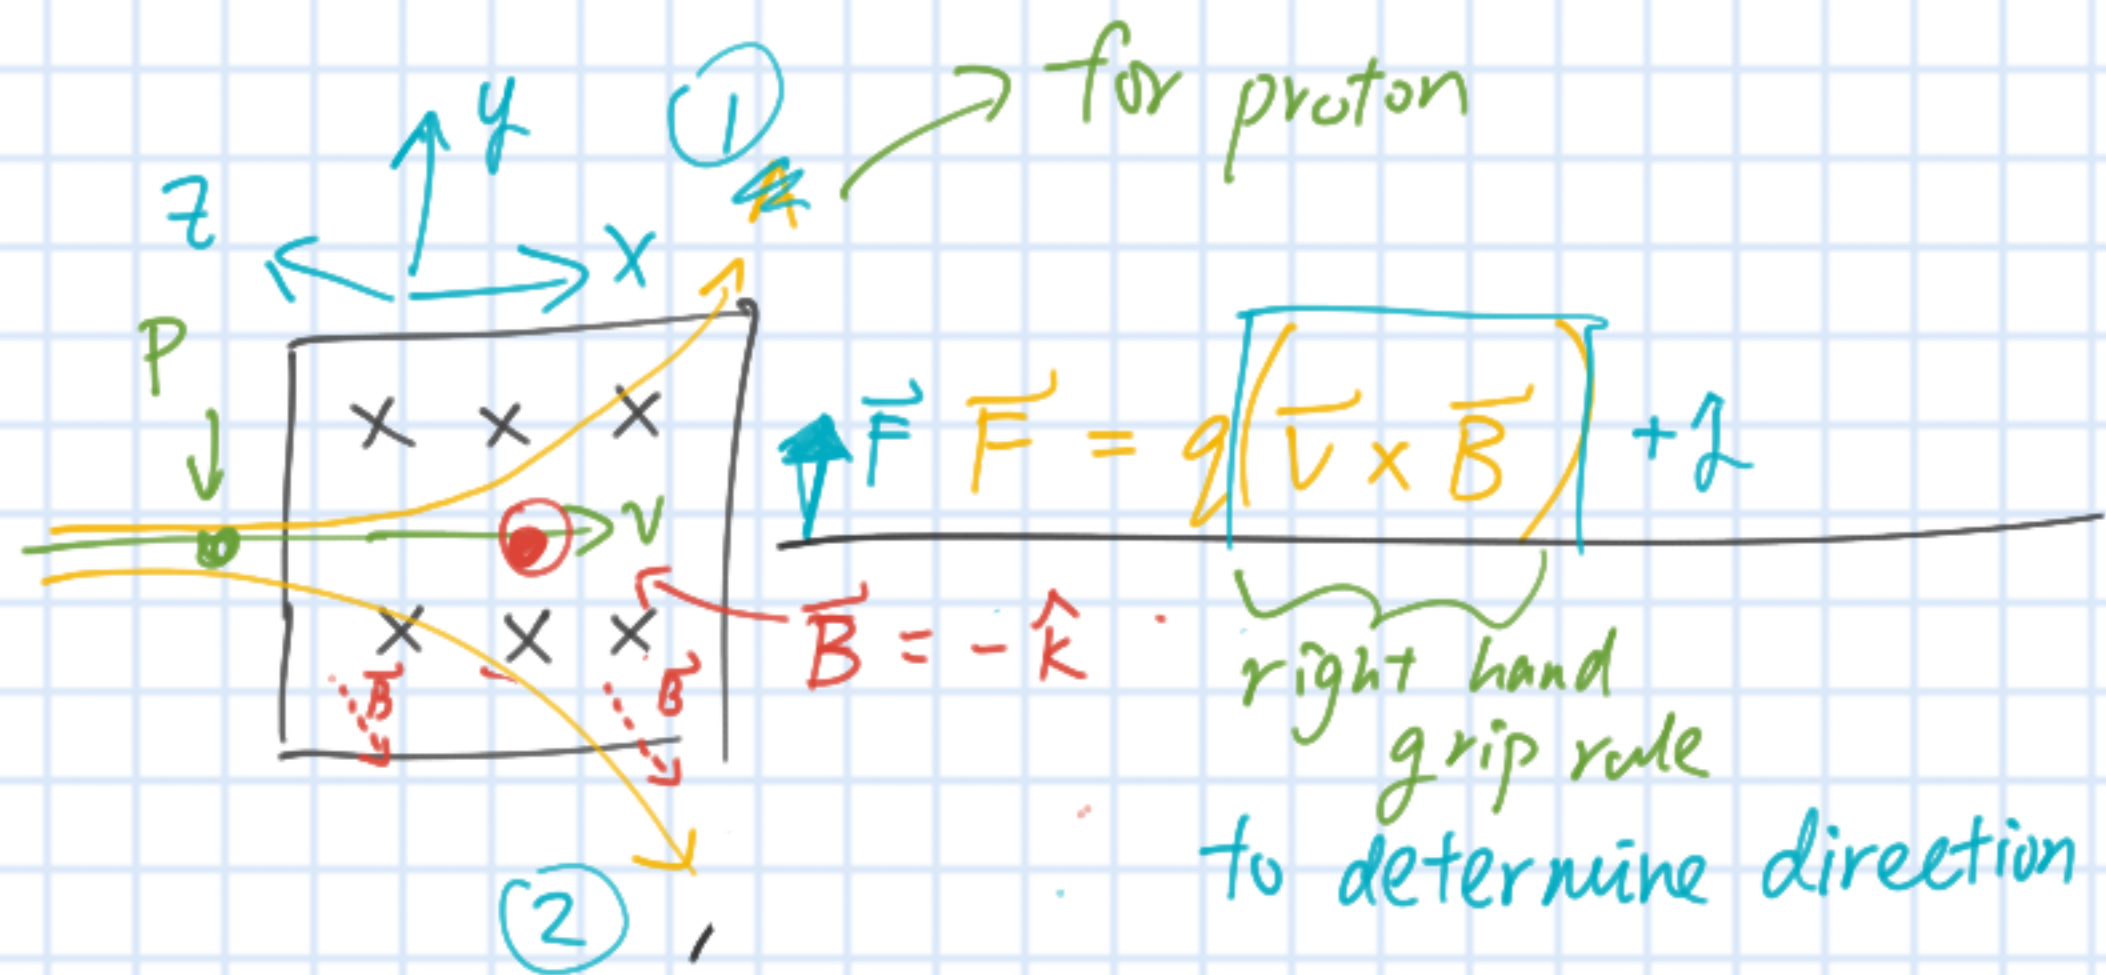 y
①
for proton
z
x
P
F⃗
F⃗ = q(v⃗ × B⃗)
+ĵ
× × ×
v
B⃗ = - k̂
× × ×
B⃗
B⃗
right hand
grip rule
to determine direction
②